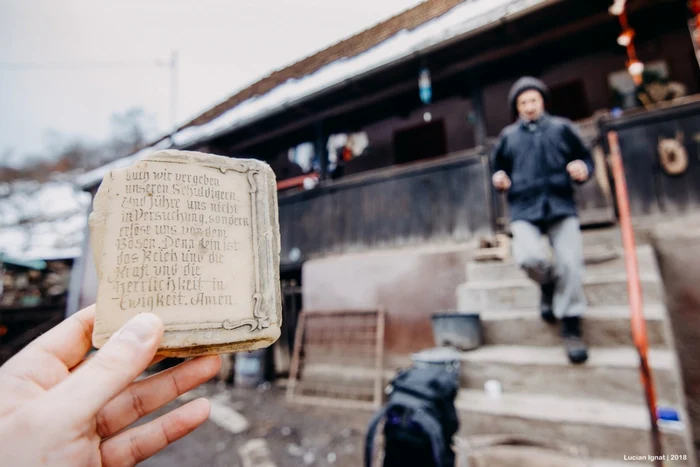 auch wir vergeben
unseren Schuldigern
Und führe uns nicht
in Versuchung, sondern
erlöse uns von dem
Bösen. Denn dein ist
das Reich und die
Kraft und die
Herrlichkeit in
Ewigkeit. Amen.
Lucian Ignat | 2018